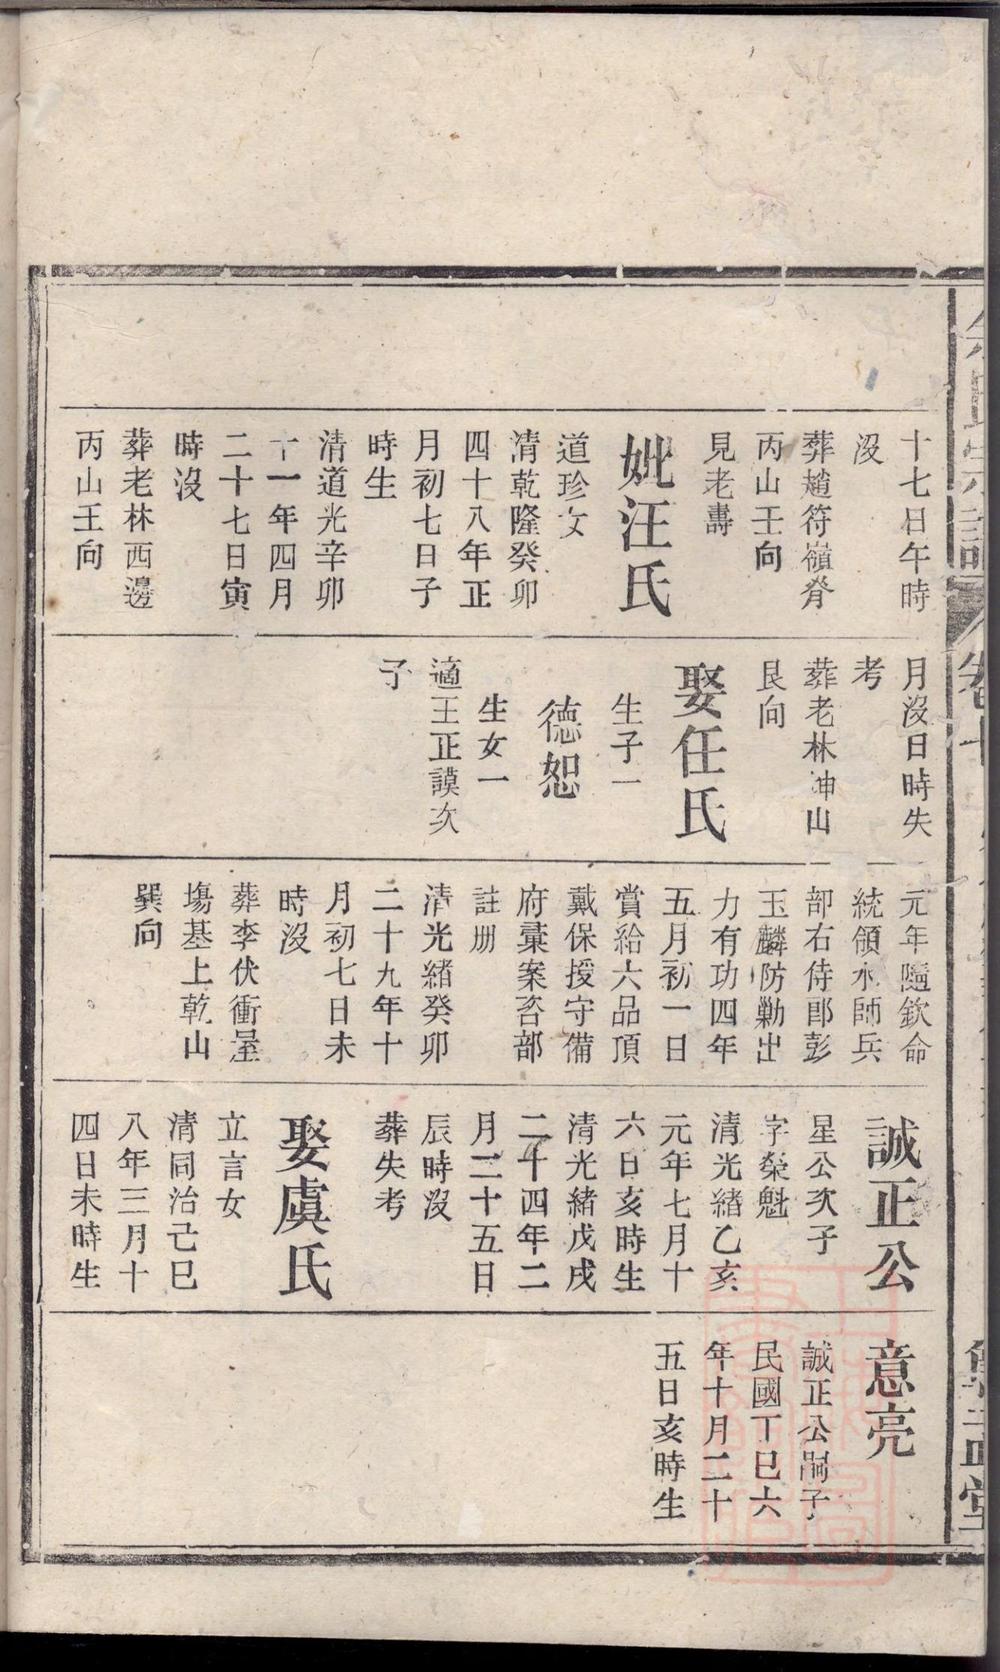 十七日午時
沒
葬趙符嶺脊
丙山壬向
見老壽
妣汪氏
道珍女
清乾隆癸卯
四十八年正
月初七日子
時生
清道光辛卯
十一年四月
二十七日寅
時沒
葬老林西邊
丙山壬向
月沒日時失
考
葬老林坤山
艮向
娶任氏
生子一
德恕
生女一
適王正謨次
子
元年隨欽命
統領水師兵
部右侍郎彭
玉麟防勦出
力有功四年
五月初一日
賞給六品頂
戴保授守備
府彙案咨部
註册
清光緒癸卯
二十九年十
月初七日未
時沒
葬李伏衝屋
塲基上乾山
巽向
誠正公
星公次子
字榮魁
清光緒乙亥
元年七月十
六日亥時生
清光緒戊戌
二十四年二
月二十五日
辰時沒
葬失考
娶虞氏
立言女
清同治己巳
八年三月十
四日未時生
意亮
誠正公嗣子
民國丁巳六
年十月二十
五日亥時生